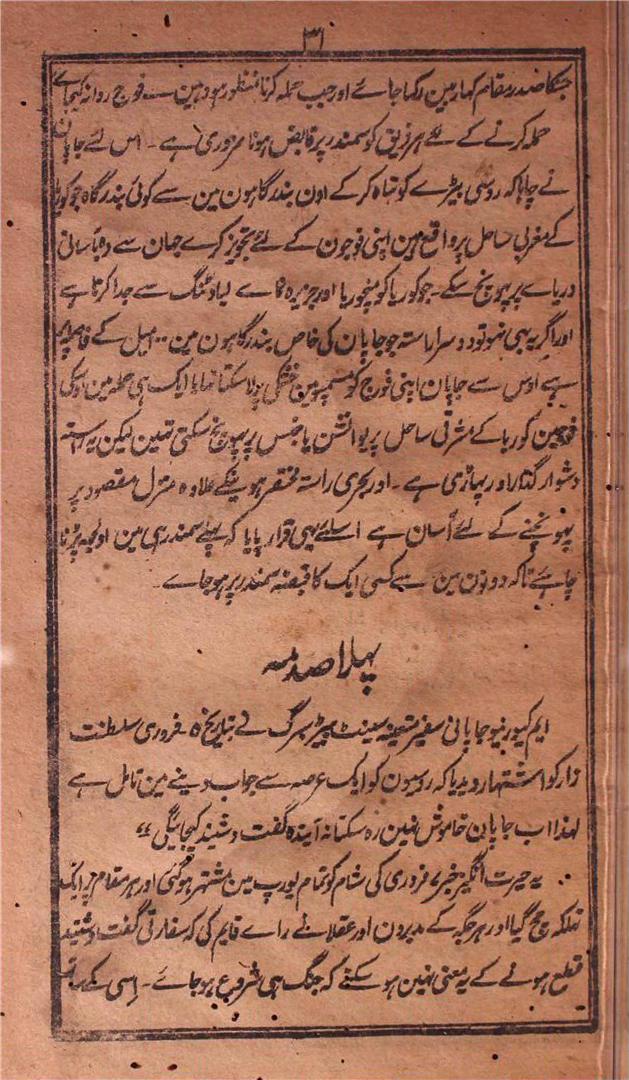 ۳۱
جسکا صدر مقام کہار مین رکھا جائے اور جب حملہ کرنا منظور ہو وہین سے فوج روانہ کیجاے
حملہ کرنے کے لئے ہر فریق کو سمندر پر قابض ہونا ضروری ہے ۔ اس لئے جاپان
نے چاہا کہ روسی بیڑے کو تباہ کر کے اون بندرگاہون مین سے کوئی بندرگاہ جو کوریا
کے مغربی ساحل پر واقع ہین اپنی فوجون کے لئے تجویز کرے جہان سے وہ بآسانی
دریاے پر پہونچ سکے ۔ جو کوریا کو منچوریا اور جزیرہ نماے لیاوٹنگ سے جدا کرتا ہے
اور اگر یہ بھی نہو تو دوسرا راستہ جو جاپان کی خاص بندرگاہون مین ۱۰۰ میل کے فاصلہ پر
ہے اوس سے جاپان اپنی فوج کو مین خشکی پر لا سکتا تھا یا ایک ہی حملہ مین اوسکی
فوجین کوریا کے مشرقی ساحل پر یا جنس پر پہونچ سکتی تہین لیکن یہ راستہ
دشوار گذار اور پہاڑی ہے ۔ اور بحری راستہ مختصر ہونیکے علاوہ منزل مقصود پر
پہونچنے کے لئے آسان ہے اسلئے یہی قرار پایا کہ پہلے سمندر ہی مین اولجھ پڑنا
چاہئے تاکہ دونون مین سے کسی ایک کا قبضہ سمندر پر ہو جاے ۔
پہلا صدمہ
ایم کیورینو جاپانی سفیر متعینہ سینٹ پیٹرسبرگ نے بتاریخ ۵ فروری سلطنت
زار کو اشتہار دیدیا کہ روسیون کو ایک عرصہ سے جواب دینے مین تامل ہے
لہذا اب جاپان خاموش نہین رہ سکتا نہ آیندہ گفت و شنید کیجائیگی “
یہ حیرت انگیز خبر ۷ فروری کی شام کو تمام یورپ مین مشتہر ہو گئی اور ہر مقام پر ایک
تہلکہ مچ گیا اور ہر جگہ کے مدبرون اور عقلا نے راے قایم کی کہ سفارتی گفت و شنید
قطع ہونے کے یہ معنی نہین ہو سکتے کہ جنگ ہی شروع ہو جاے ۔ اسی کے ساتھ